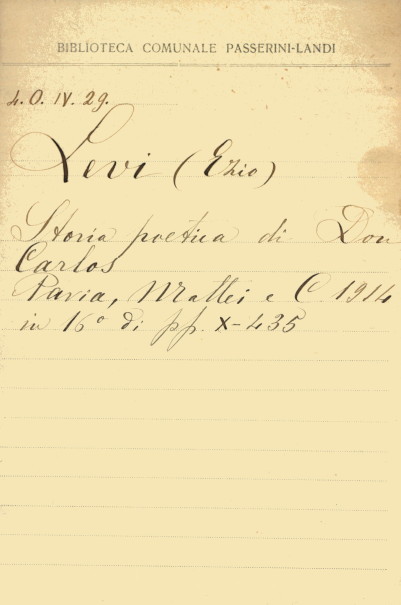 BIBLIOTECA COMUNALE PASSERINI-LANDI
4.O.IV.29.
Levi (Ezio)
Storia poetica di Don
Carlos
Pavia, Mattei e C 1914
in 16º di pp. X-435